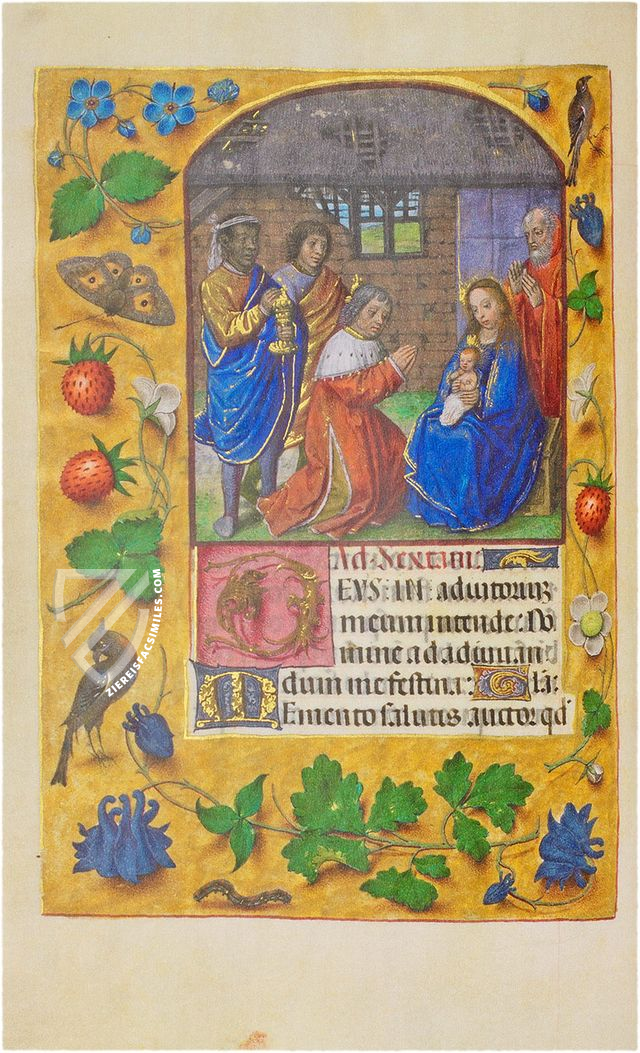 Ad Sextam
DEVS IN adiutoriuȝ
meum intende: Do
mine ad adiuuan
dum me festina: Gla:
MEmento salutis auctor qd
ZIEREISFACSIMILES.COM